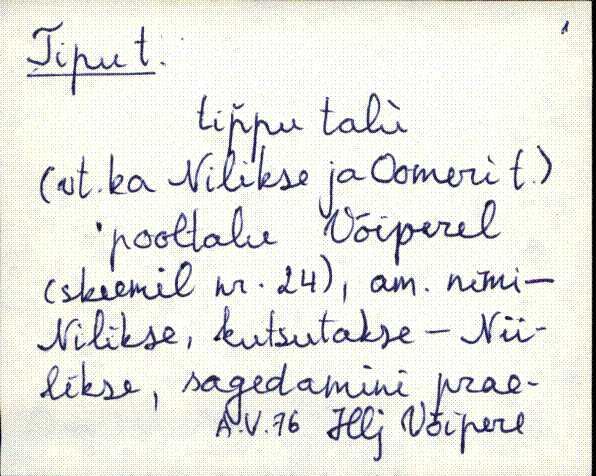 1
Tipu t.
tip̆pu talù
(vt. ka Nilikse ja Oomeri t.)
'pooltalu Võiperel
(skeemil nr. 24), am. nimi—
Nilikse, kutsutakse — Nii-
likse, sagedamini prae-
A.V.76 Hlj Võipere